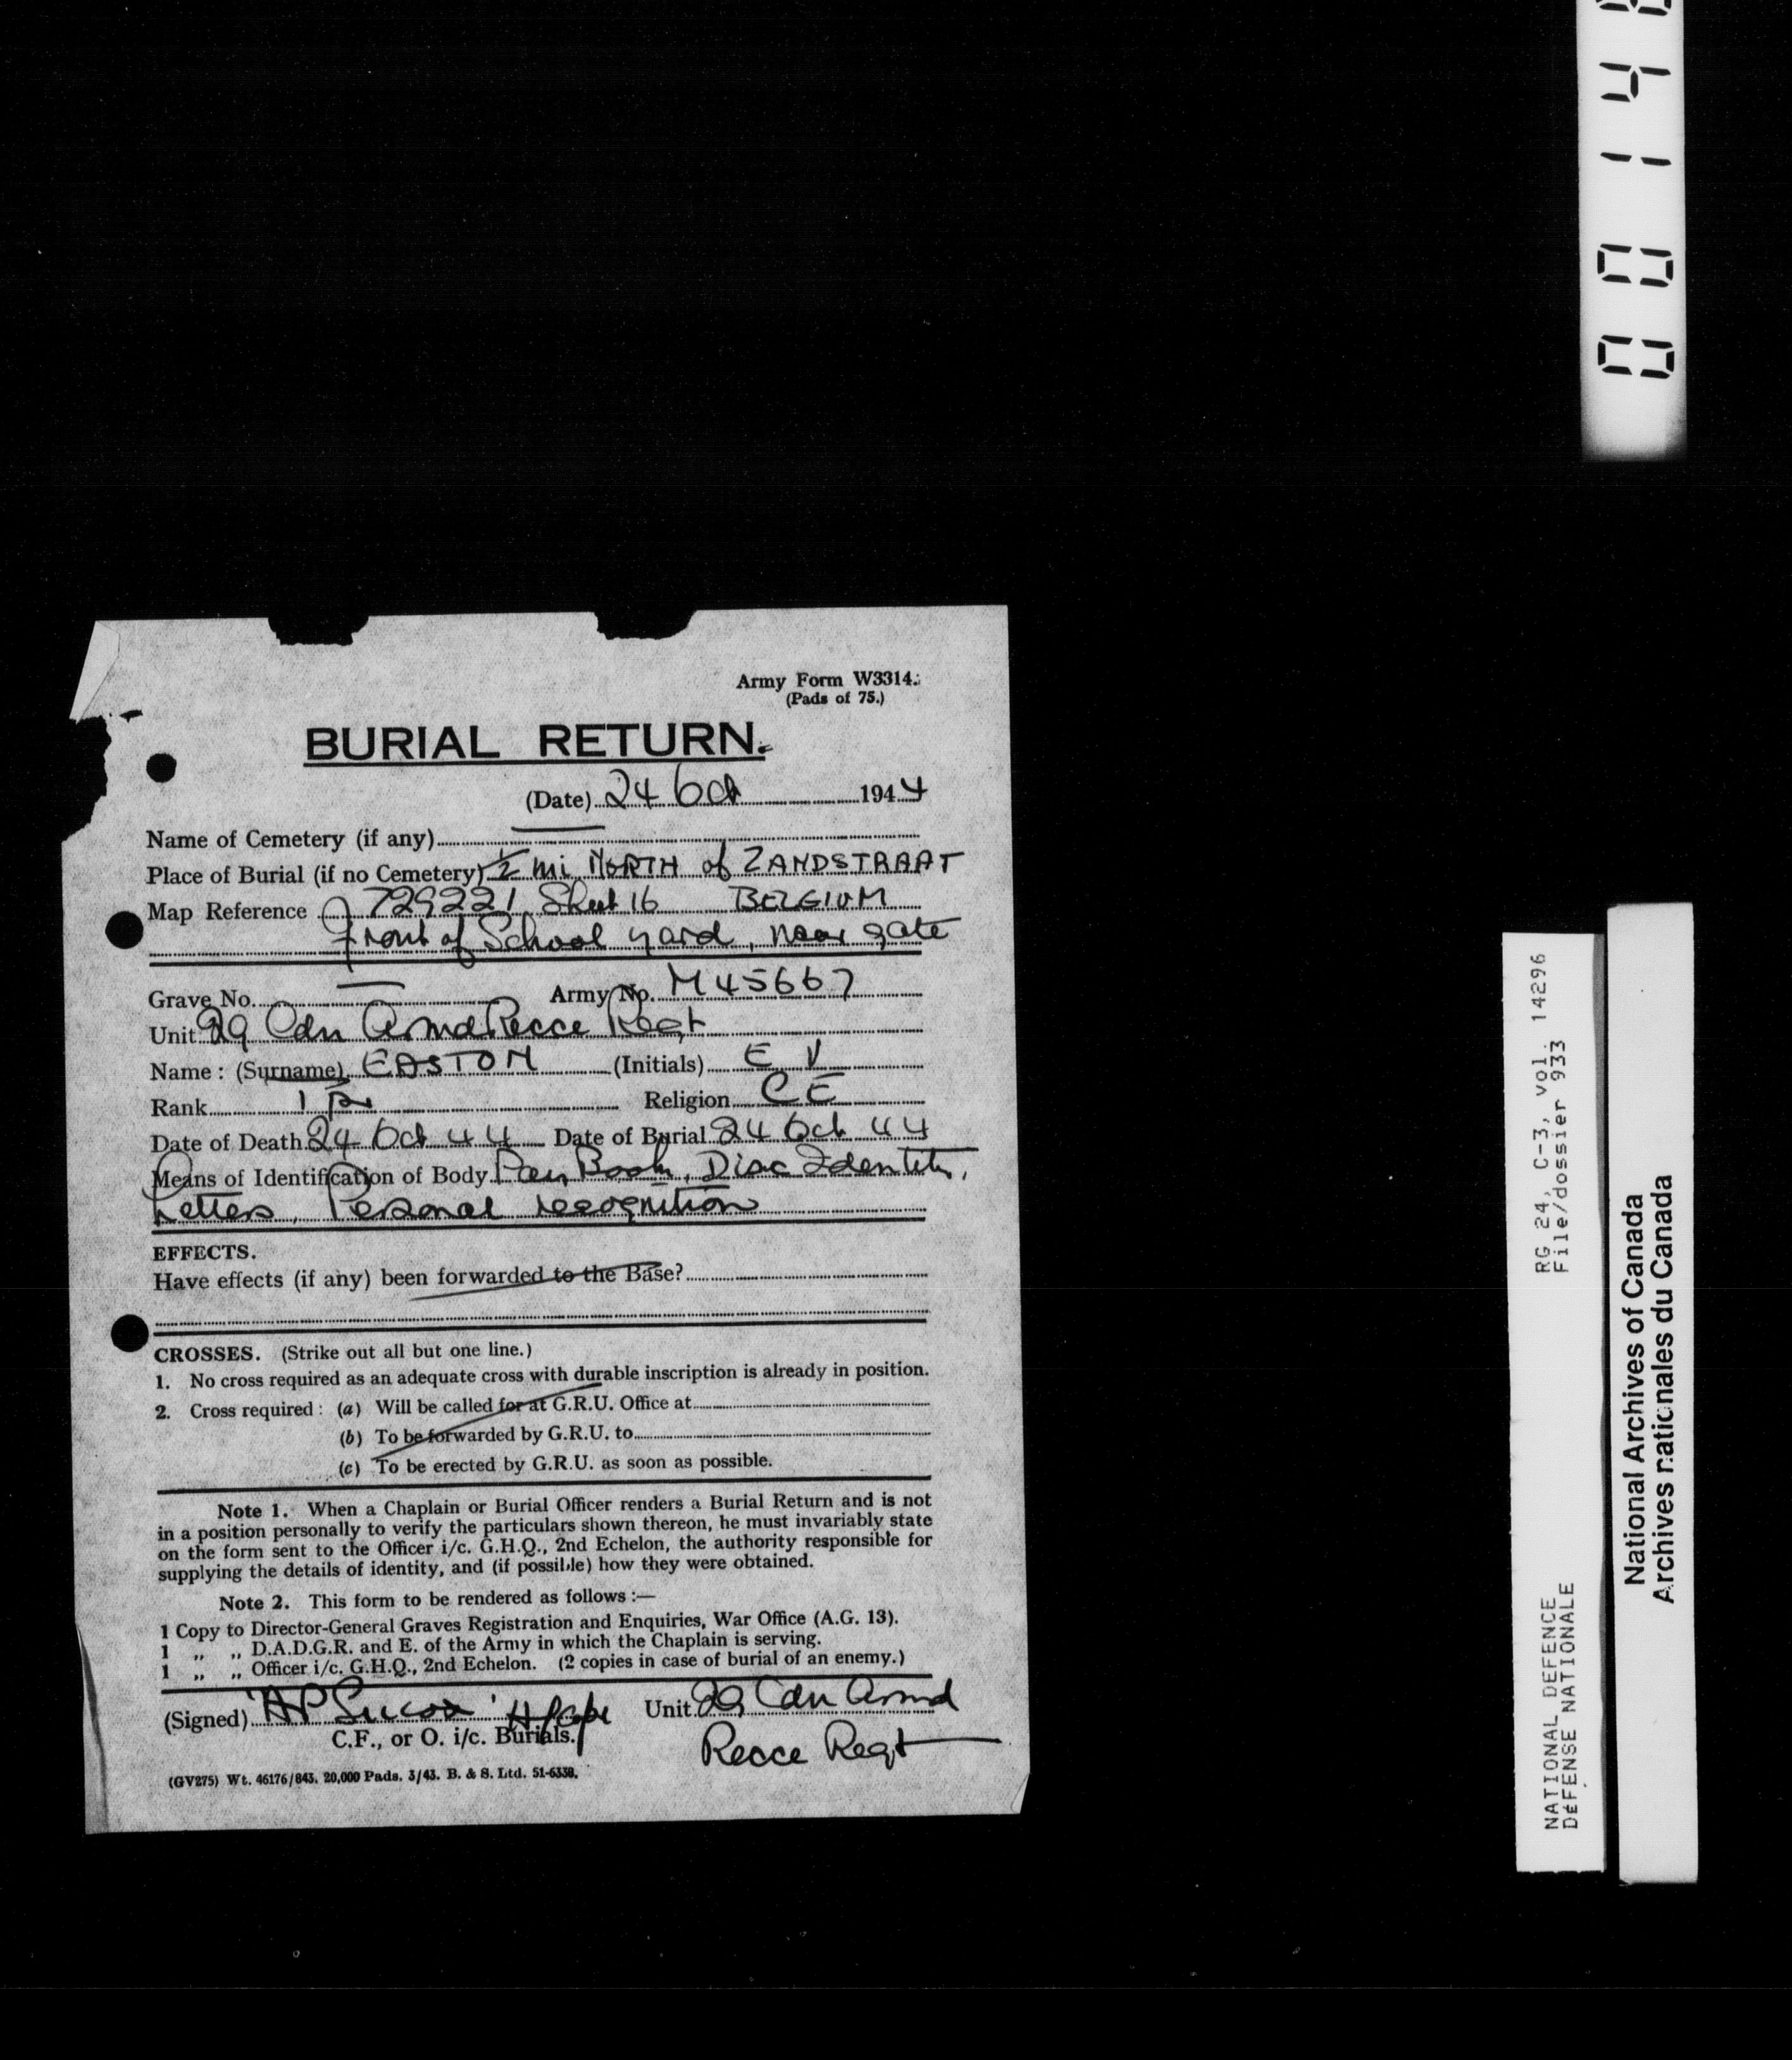 Army Form W3314.
(Pads of 75.)
BURIAL RETURN.
(Date) 24 Oct 1944
Name of Cemetery (if any) —
Place of Burial (if no Cemetery) ½ mi NORTH of ZANDSTRAAT
Map Reference 729221 Sheet 16 BELGIUM
Front of School yard, near gate
Grave No. — Army No. M45667
Unit 29 Cdn Armd Recce Regt
Name : (Surname) EASTON (Initials) E V
Rank Tpr Religion CE
Date of Death 24 Oct 44 Date of Burial 24 Oct 44
Means of Identification of Body Pay Book, Disc Identity,
Letters, Personal recognition
EFFECTS.
Have effects (if any) been forwarded to the Base?
CROSSES. (Strike out all but one line.)
1. No cross required as an adequate cross with durable inscription is already in position.
2. Cross required : (a) Will be called for at G.R.U. Office at
(b) To be forwarded by G.R.U. to
(c) To be erected by G.R.U. as soon as possible.
Note 1. When a Chaplain or Burial Officer renders a Burial Return and is not
in a position personally to verify the particulars shown thereon, he must invariably state
on the form sent to the Officer i/c. G.H.Q., 2nd Echelon, the authority responsible for
supplying the details of identity, and (if possible) how they were obtained.
Note 2. This form to be rendered as follows :—
1 Copy to Director-General Graves Registration and Enquiries, War Office (A.G. 13).
1 „ „ D.A.D.G.R. and E. of the Army in which the Chaplain is serving.
1 „ „ Officer i/c. G.H.Q., 2nd Echelon. (2 copies in case of burial of an enemy.)
(Signed) AP H/Capt Unit 29 Cdn Armd
C.F., or O. i/c. Burials. Recce Regt
(GV275) Wt. 46176/843. 20,000 Pads. 3/43. B. & S. Ltd. 51-6338.
NATIONAL DEFENCE RG 24, C-3, vol. 14296
DÉFENSE NATIONALE File/dossier 933
National Archives of Canada
Archives nationales du Canada